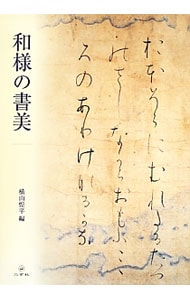 和様の書美
横山煌平 編
おほそらにむれたるたつ
のさしなからおもふこゝ
ろのありけなるかな